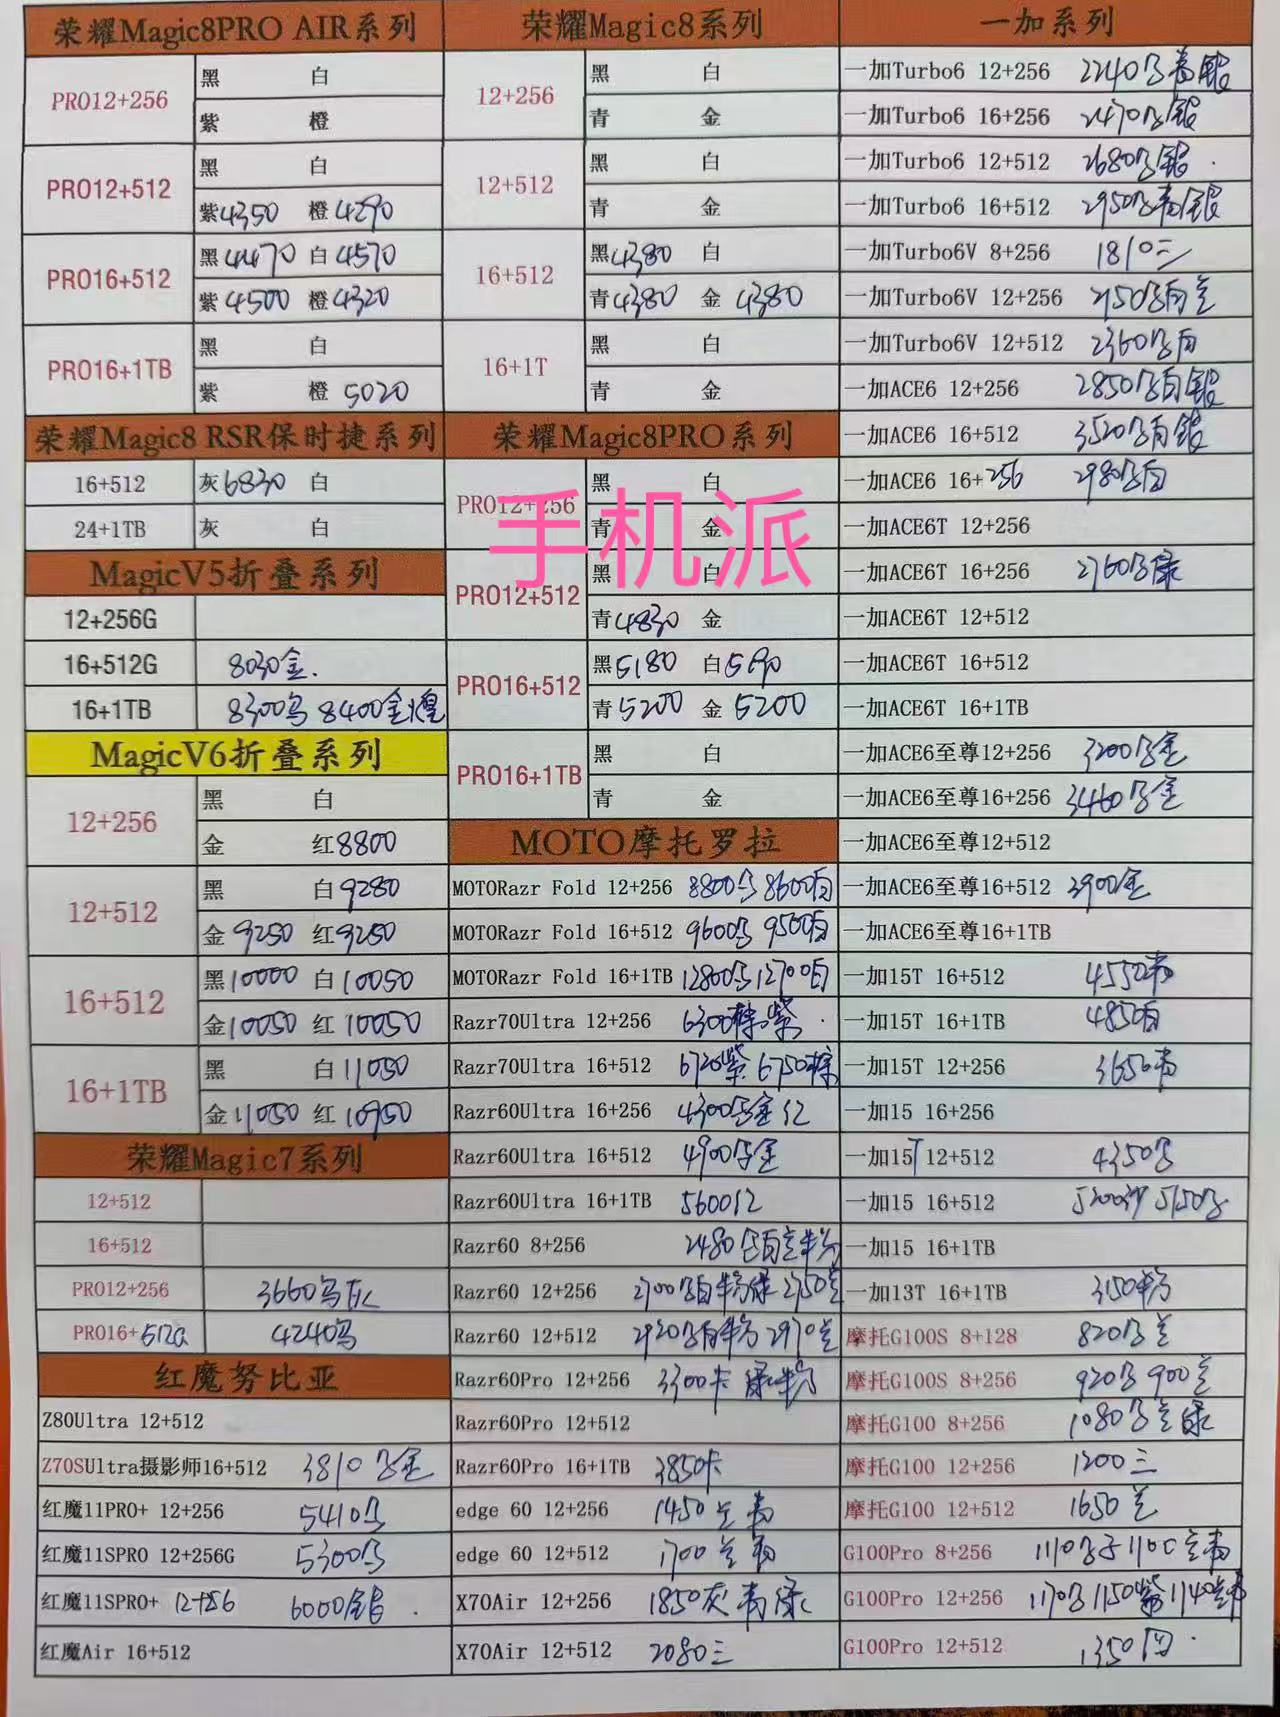 荣耀Magic8PRO AIR系列
PRO12+256
黑 白
紫 橙
PRO12+512
黑 白
紫4350 橙4290
PRO16+512
黑4470 白4570
紫4500 橙4320
PRO16+1TB
黑 白
紫 橙 5020
荣耀Magic8 RSR保时捷系列
16+512 灰6830 白
24+1TB 灰 白
MagicV5折叠系列
12+256G
16+512G 8030金.
16+1TB 8300 8400金
MagicV6折叠系列
12+256
黑 白
金 红8800
12+512
黑 白9280
金9250 红9250
16+512
黑10000 白10050
金10050 红10050
16+1TB
黑 白11050
金11050 红10950
荣耀Magic7系列
12+512
16+512
PRO12+256 3660 灰
PRO16+512G 4240
红魔努比亚
Z80Ultra 12+512
Z70SUltra摄影师16+512 3810 金
红魔11PRO+ 12+256 5410
红魔11SPRO 12+256G 5300
红魔11SPRO+ 12+256 6000银 .
红魔Air 16+512
荣耀Magic8系列
12+256
黑 白
青 金
12+512
黑 白
青 金
16+512
黑4380 白
青4380 金 4380
16+1T
黑 白
青 金
荣耀Magic8PRO系列
PRO12+256
黑 白
青 金
手机派
PRO12+512
黑 白
青4830 金
PRO16+512
黑5180 白5190
青5200 金5200
PRO16+1TB
黑 白
青 金
MOTO摩托罗拉
MOTORazr Fold 12+256 8800 8600白
MOTORazr Fold 16+512 9600 9500白
MOTORazr Fold 16+1TB 12800 12700白
Razr70Ultra 12+256 6300棕 紫 .
Razr70Ultra 16+512 6720紫 6750棕
Razr60Ultra 16+256 4300 金 红
Razr60Ultra 16+512 4900 金
Razr60Ultra 16+1TB 5600红
Razr60 8+256 2480 白兰粉
Razr60 12+256 2700 白粉绿 2750兰
Razr60 12+512 2930 白粉 2970兰
Razr60Pro 12+256 3300卡 绿粉
Razr60Pro 12+512
Razr60Pro 16+1TB 3850卡
edge 60 12+256 1450 兰 青
edge 60 12+512 1700 兰 青
X70Air 12+256 1850灰 青 绿
X70Air 12+512 2080三
一加系列
一加Turbo6 12+256 2240 青 银
一加Turbo6 16+256 2470 银
一加Turbo6 12+512 2680 银 .
一加Turbo6 16+512 2950 青银
一加Turbo6V 8+256 1810三
一加Turbo6V 12+256 2150 白兰
一加Turbo6V 12+512 2360 白
一加ACE6 12+256 2850 白银
一加ACE6 16+512 3520 白银
一加ACE6 16+256 2980 白
一加ACE6T 12+256
一加ACE6T 16+256 2760 绿
一加ACE6T 12+512
一加ACE6T 16+512
一加ACE6T 16+1TB
一加ACE6至尊12+256 3200 金
一加ACE6至尊16+256 3460 金
一加ACE6至尊12+512
一加ACE6至尊16+512 3900金
一加ACE6至尊16+1TB
一加15T 16+512 4550青
一加15T 16+1TB 4850白
一加15T 12+256 3650青
一加15 16+256
一加15T 12+512 4350
一加15 16+512 5200沙 5150
一加15 16+1TB
一加13T 16+1TB 3150粉
摩托G100S 8+128 820 兰
摩托G100S 8+256 920 900兰
摩托G100 8+256 1080 兰 绿
摩托G100 12+256 1200三
摩托G100 12+512 1650兰
G100Pro 8+256 1110 1100 兰青
G100Pro 12+256 1170 1150紫 1140兰
G100Pro 12+512 1350四 .